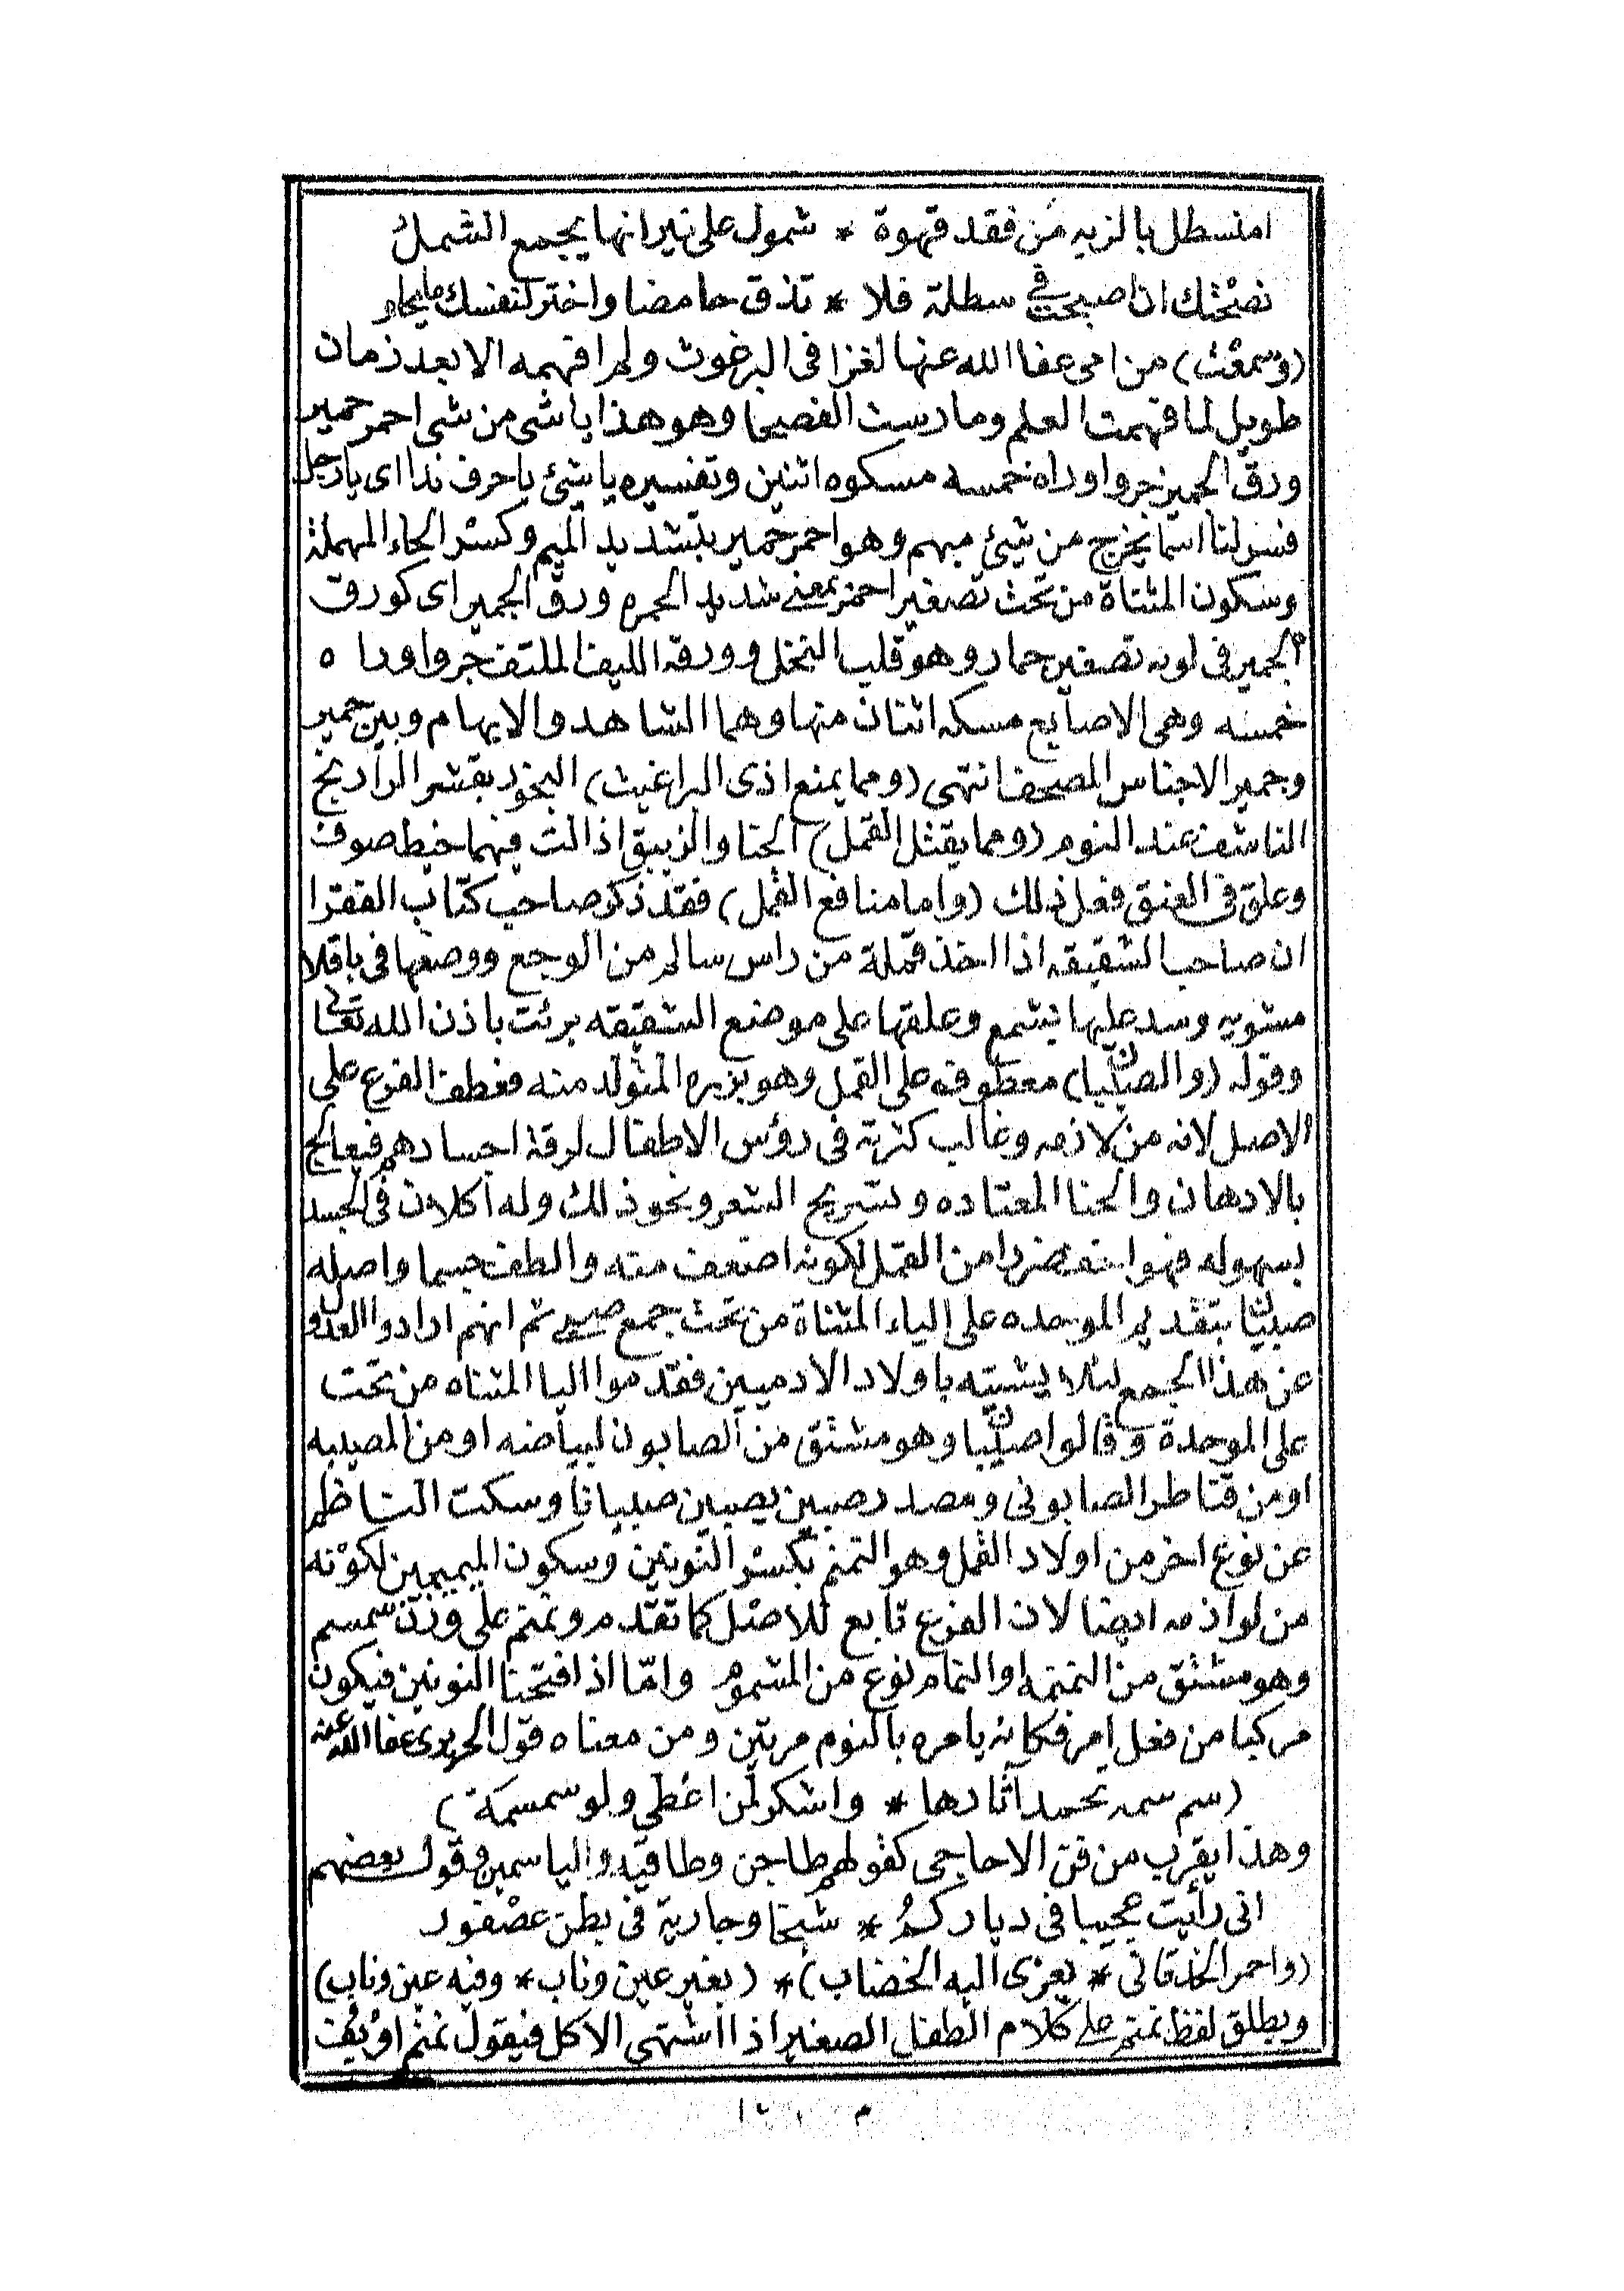 امنسطل بالزيه من فقد قهوة * شمول على نيرانها يجمع الشمل
نصحتك ان اصبحت في سطلة فلا * تذق حامضا واختر لنفسك ما يحلو
(وسمعت) من امى عفا الله عنها لغزا فى البرغوث ولم افهمه الا بعد زمان
طويل لما فهمت العلم ومارست الفصيحا وهو هذا ياشى من شى احمر حمير
ورق الجمير جروا وراه خمسه مسكوه اثنين وتفسيره يا شيئ يا حرف ندا اى يا رجل
فسر لنا اسما يخرج من شيئ مبهم وهو احمر حمير بتشديد الميم وكسر الحاء المهملة
وسكون المثناة من تحت تصغير احمر بمعنى شديد الحمره ورق الجمير اى كورق
الجمير فى لونه تصغير جمار وهو قلب النخل وورقه الليف الملتف جروا ورا ه
خمسه وهى الاصابع مسكه اثنان منها وهما الشاهد والابهام وبين حمير
وجمير الاجناس المصحف انتهى (ومما يمنع اذى البراغيث) البخور بقشر النارنج
الناشف عند النوم (ومما يقتل القمل) الحنا والزيبق اذا لت فيهما خيط صوف
وعلق فى العنق فعل ذلك (واما منافع القمل) فقد ذكر صاحب كتاب الفقرا
ان صاحب الشقيقه اذا اخذ قملة من راس سالم من الوجع ووضعها فى باقلا
مستويه وسد عليها بشمع وعلقها على موضع الشقيقه برئت باذن الله تعالى
وقوله (والصيبان) معطوفه على القمل وهو بزيره المتولد منه فعطف الفرع على
الاصل لانه من لازمه وغالب كثرته فى رؤس الاطفال لرقة اجسادهم فيعالج
بالادهان والحنا المعتاده وتسريح الشعر ونحو ذلك وله اكلان فى الجسد
بسهوله فهو اخف ضررا من القمل لكونه اضعف منه والطف جسما واصله
صبيان بتقديم الموحده على الياء المثناة من تحت جمع صبي ثم انهم ارادوا العدول
عن هذا الجمع لئلا يشتبه باولاد الادميين فقدموا اليا المثناه من تحت
على الموحدة وقالوا صيبان وهو مشتق من الصابون لبياضه او من المصيبه
او من قناطر الصابونى ومصدر صبين يصبين صيبانا وسكت الناظم
عن نوع اخر من اولاد القمل وهو النمنم بكسر النونين وسكون الميمين لكونه
من لوازمه ايضا لان الفرع تابع للاصل كما تقدم ونمنم على وزن سمسم
وهو مشتق من النمنمه او النمام نوع من المشموم واما اذ افتحنا النونين فيكون
مركبا من فعل امر فكانه يامره بالنوم مرتين ومن معناه قول الحريرى عفا الله عنه
(سم سمه نحمد آثارها * واشكر لمن اعطى ولو سمسمة)
وهذا يقرب من فن الاحاجى كقولهم طاجن وطاقيه والياسمين وقول بعضهم
انى رأيت عجيبا فى دياركم * شيخا وجارية فى بطن عصفور
(واحمر الخد قانى * يعزى اليه الخضاب) * (بغير عين وناب * وفيه عين وناب)
ويطلق لفظ نمنم على كلام الطفل الصغير اذا اشتهى الاكل فيقول نمنم او بف